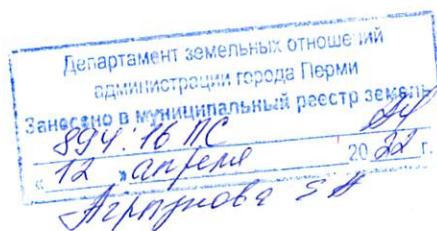 Департамент земельных отношений
администрации города Перми
Занесено в муниципальный реестр земель
894:16 ПС
« 12 » апреля 2022 г.